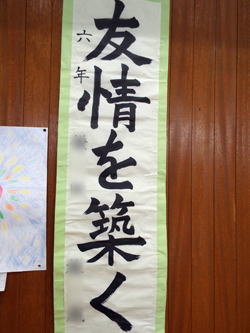 友情を築く
六年